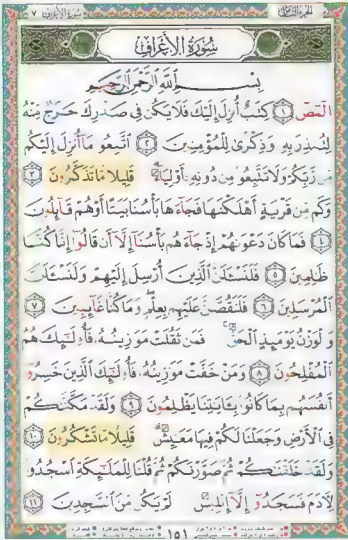 الجزء الثامن
٧ سورة الأعراف
سُورَةُ الأَعْرَافِ
بِسْمِ ٱللَّهِ ٱلرَّحْمَٰنِ ٱلرَّحِيمِ
الٓمٓصٓ ١ كِتَٰبٌ أُنزِلَ إِلَيْكَ فَلَا يَكُن فِى صَدْرِكَ حَرَجٌ مِّنْهُ
لِتُنذِرَ بِهِۦ وَذِكْرَىٰ لِلْمُؤْمِنِينَ ٢ ٱتَّبِعُوا۟ مَآ أُنزِلَ إِلَيْكُم
مِّن رَّبِّكُمْ وَلَا تَتَّبِعُوا۟ مِن دُونِهِۦٓ أَوْلِيَآءَ ۗ قَلِيلًا مَّا تَذَكَّرُونَ ٣
وَكَم مِّن قَرْيَةٍ أَهْلَكْنَٰهَا فَجَآءَهَا بَأْسُنَا بَيَٰتًا أَوْ هُمْ قَآئِلُونَ
٤ فَمَا كَانَ دَعْوَىٰهُمْ إِذْ جَآءَهُم بَأْسُنَآ إِلَّآ أَن قَالُوٓا۟ إِنَّا كُنَّا
ظَٰلِمِينَ ٥ فَلَنَسْـَٔلَنَّ ٱلَّذِينَ أُرْسِلَ إِلَيْهِمْ وَلَنَسْـَٔلَنَّ
ٱلْمُرْسَلِينَ ٦ فَلَنَقُصَّنَّ عَلَيْهِم بِعِلْمٍ ۖ وَمَا كُنَّا غَآئِبِينَ ٧
وَٱلْوَزْنُ يَوْمَئِذٍ ٱلْحَقُّ ۚ فَمَن ثَقُلَتْ مَوَٰزِينُهُۥ فَأُو۟لَٰٓئِكَ هُمُ
ٱلْمُفْلِحُونَ ٨ وَمَنْ خَفَّتْ مَوَٰزِينُهُۥ فَأُو۟لَٰٓئِكَ ٱلَّذِينَ خَسِرُوٓا۟
أَنفُسَهُم بِمَا كَانُوا۟ بِـَٔايَٰتِنَا يَظْلِمُونَ ٩ وَلَقَدْ مَكَّنَّٰكُمْ
فِى ٱلْأَرْضِ وَجَعَلْنَا لَكُمْ فِيهَا مَعَٰيِشَ ۗ قَلِيلًا مَّا تَشْكُرُونَ ١٠
وَلَقَدْ خَلَقْنَٰكُمْ ثُمَّ صَوَّرْنَٰكُمْ ثُمَّ قُلْنَا لِلْمَلَٰٓئِكَةِ ٱسْجُدُوا۟
لِـَٔادَمَ فَسَجَدُوٓا۟ إِلَّآ إِبْلِيسَ لَمْ يَكُن مِّنَ ٱلسَّٰجِدِينَ ١١
١٥١